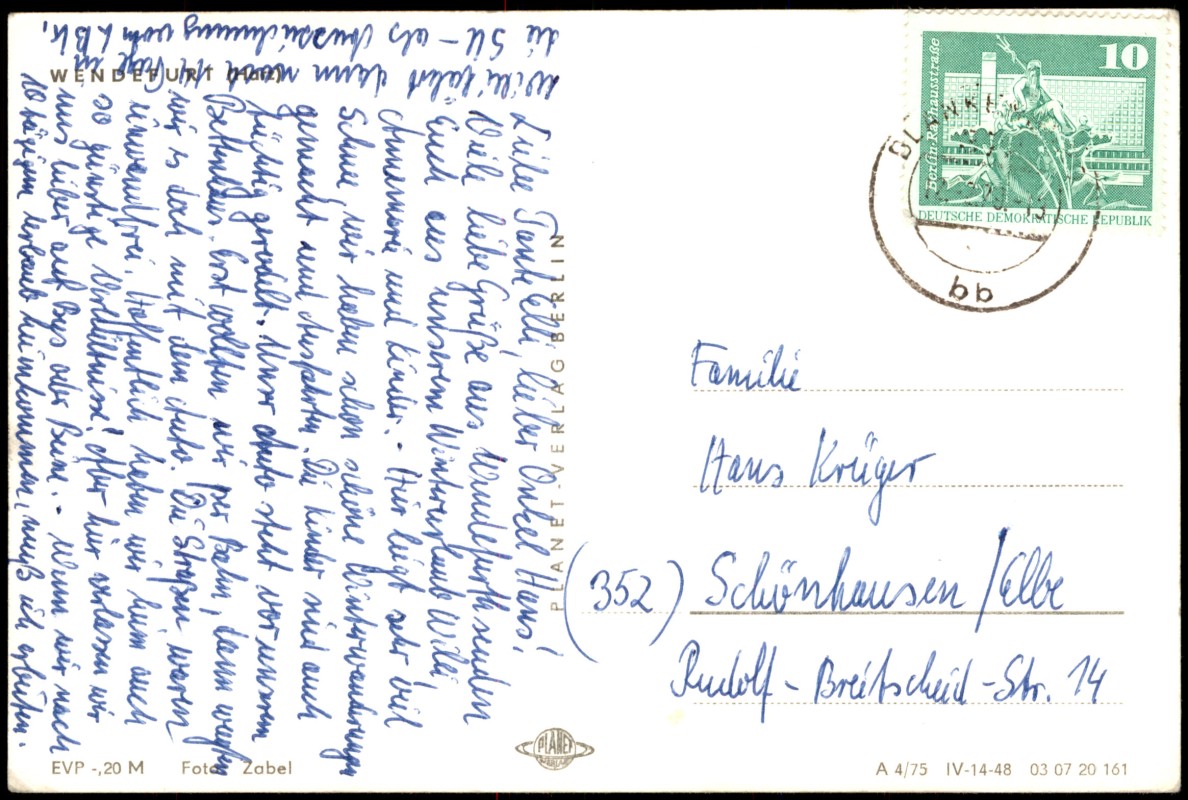 WENDEFURT (Harz)
Liebe Tante Elli, lieber Onkel Hans!
Viele liebe Grüße aus Wendefurth senden
Euch aus unserem Winterurlaub Willi,
Annemarie und Kinder. - Hier liegt sehr viel
Schnee, wir haben schon schöne Winterwanderungen
gemacht und Ausfahrten. Die Kinder sind auch
tüchtig gerodelt. Unser Auto steht vor unserem
Bettenhaus. Erst wollten wir per Bahn, dann wagten
wir es doch mit dem Auto. Die Straßen waren
einwandfrei. Hoffentlich haben wir heim auch
so günstige Verhältnisse! Aber hier verlassen wir
uns lieber auf Bus oder Beine. - Wenn wir nach
10 tägigem Urlaub heimkommen, muß ich arbeiten.
Willi fährt dann noch 14 Tage in
die SU - als Auszeichnung vom LBK.
PLANET-VERLAG BERLIN
EVP -,20 M Foto: Zabel
PLANET
VERLAG
10
Berlin Rathausstraße
DEUTSCHE DEMOKRATISCHE REPUBLIK
bb
Familie
Hans Krüger
(352) Schönhausen/Elbe
Rudolf-Breitscheid-Str. 14
A 4/75 IV-14-48 03 07 20 161